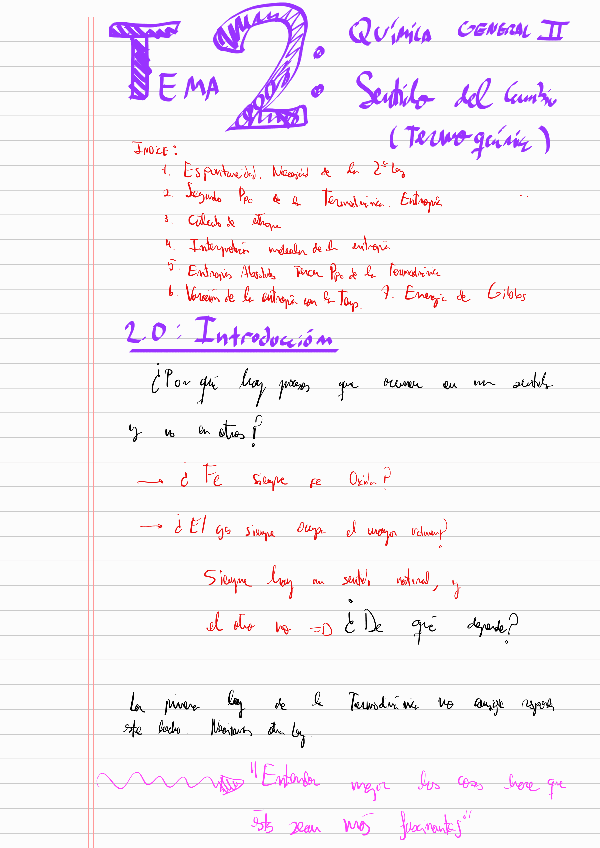 TEMA 2: QUÍMICA GENERAL II
Sentido del Cambio
(Termoquímica)
ÍNDICE:
1. Espontaneidad. Necesidad de la 2ª Ley
2. Segundo Ppo de la Termodinámica. Entropía
3 Cálculo de
4 Interpretación molecular de la entropía
5 Entropías Absolutas Tercer Ppo de la Termodinámica
6. Variación de la entropía con la Temp. 7. Energía de Gibbs
2.0: Introducción
¿Por qué hay procesos que ocurren en un sentido
y no en otros?
→ ¿Fe siempre se Oxida?
→ ¿El gas siempre ocupa el mayor volumen?
Siempre hay un sentido natural, y
el otro no => ¿De qué depende?
La primera ley de la Termodinámica no
este hecho. Necesitamos otra Ley.
"Entender mejor las cosas hace que
éstas sean más fascinantes"